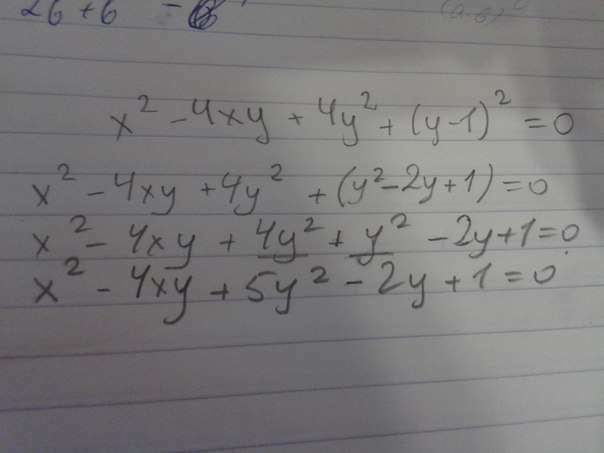 26+6 -
x² - 4xy + 4y² + (y-1)² = 0
x² - 4xy + 4y² + (y² - 2y + 1) = 0
x² - 4xy + 4y² + y² - 2y + 1 = 0
x² - 4xy + 5y² - 2y + 1 = 0